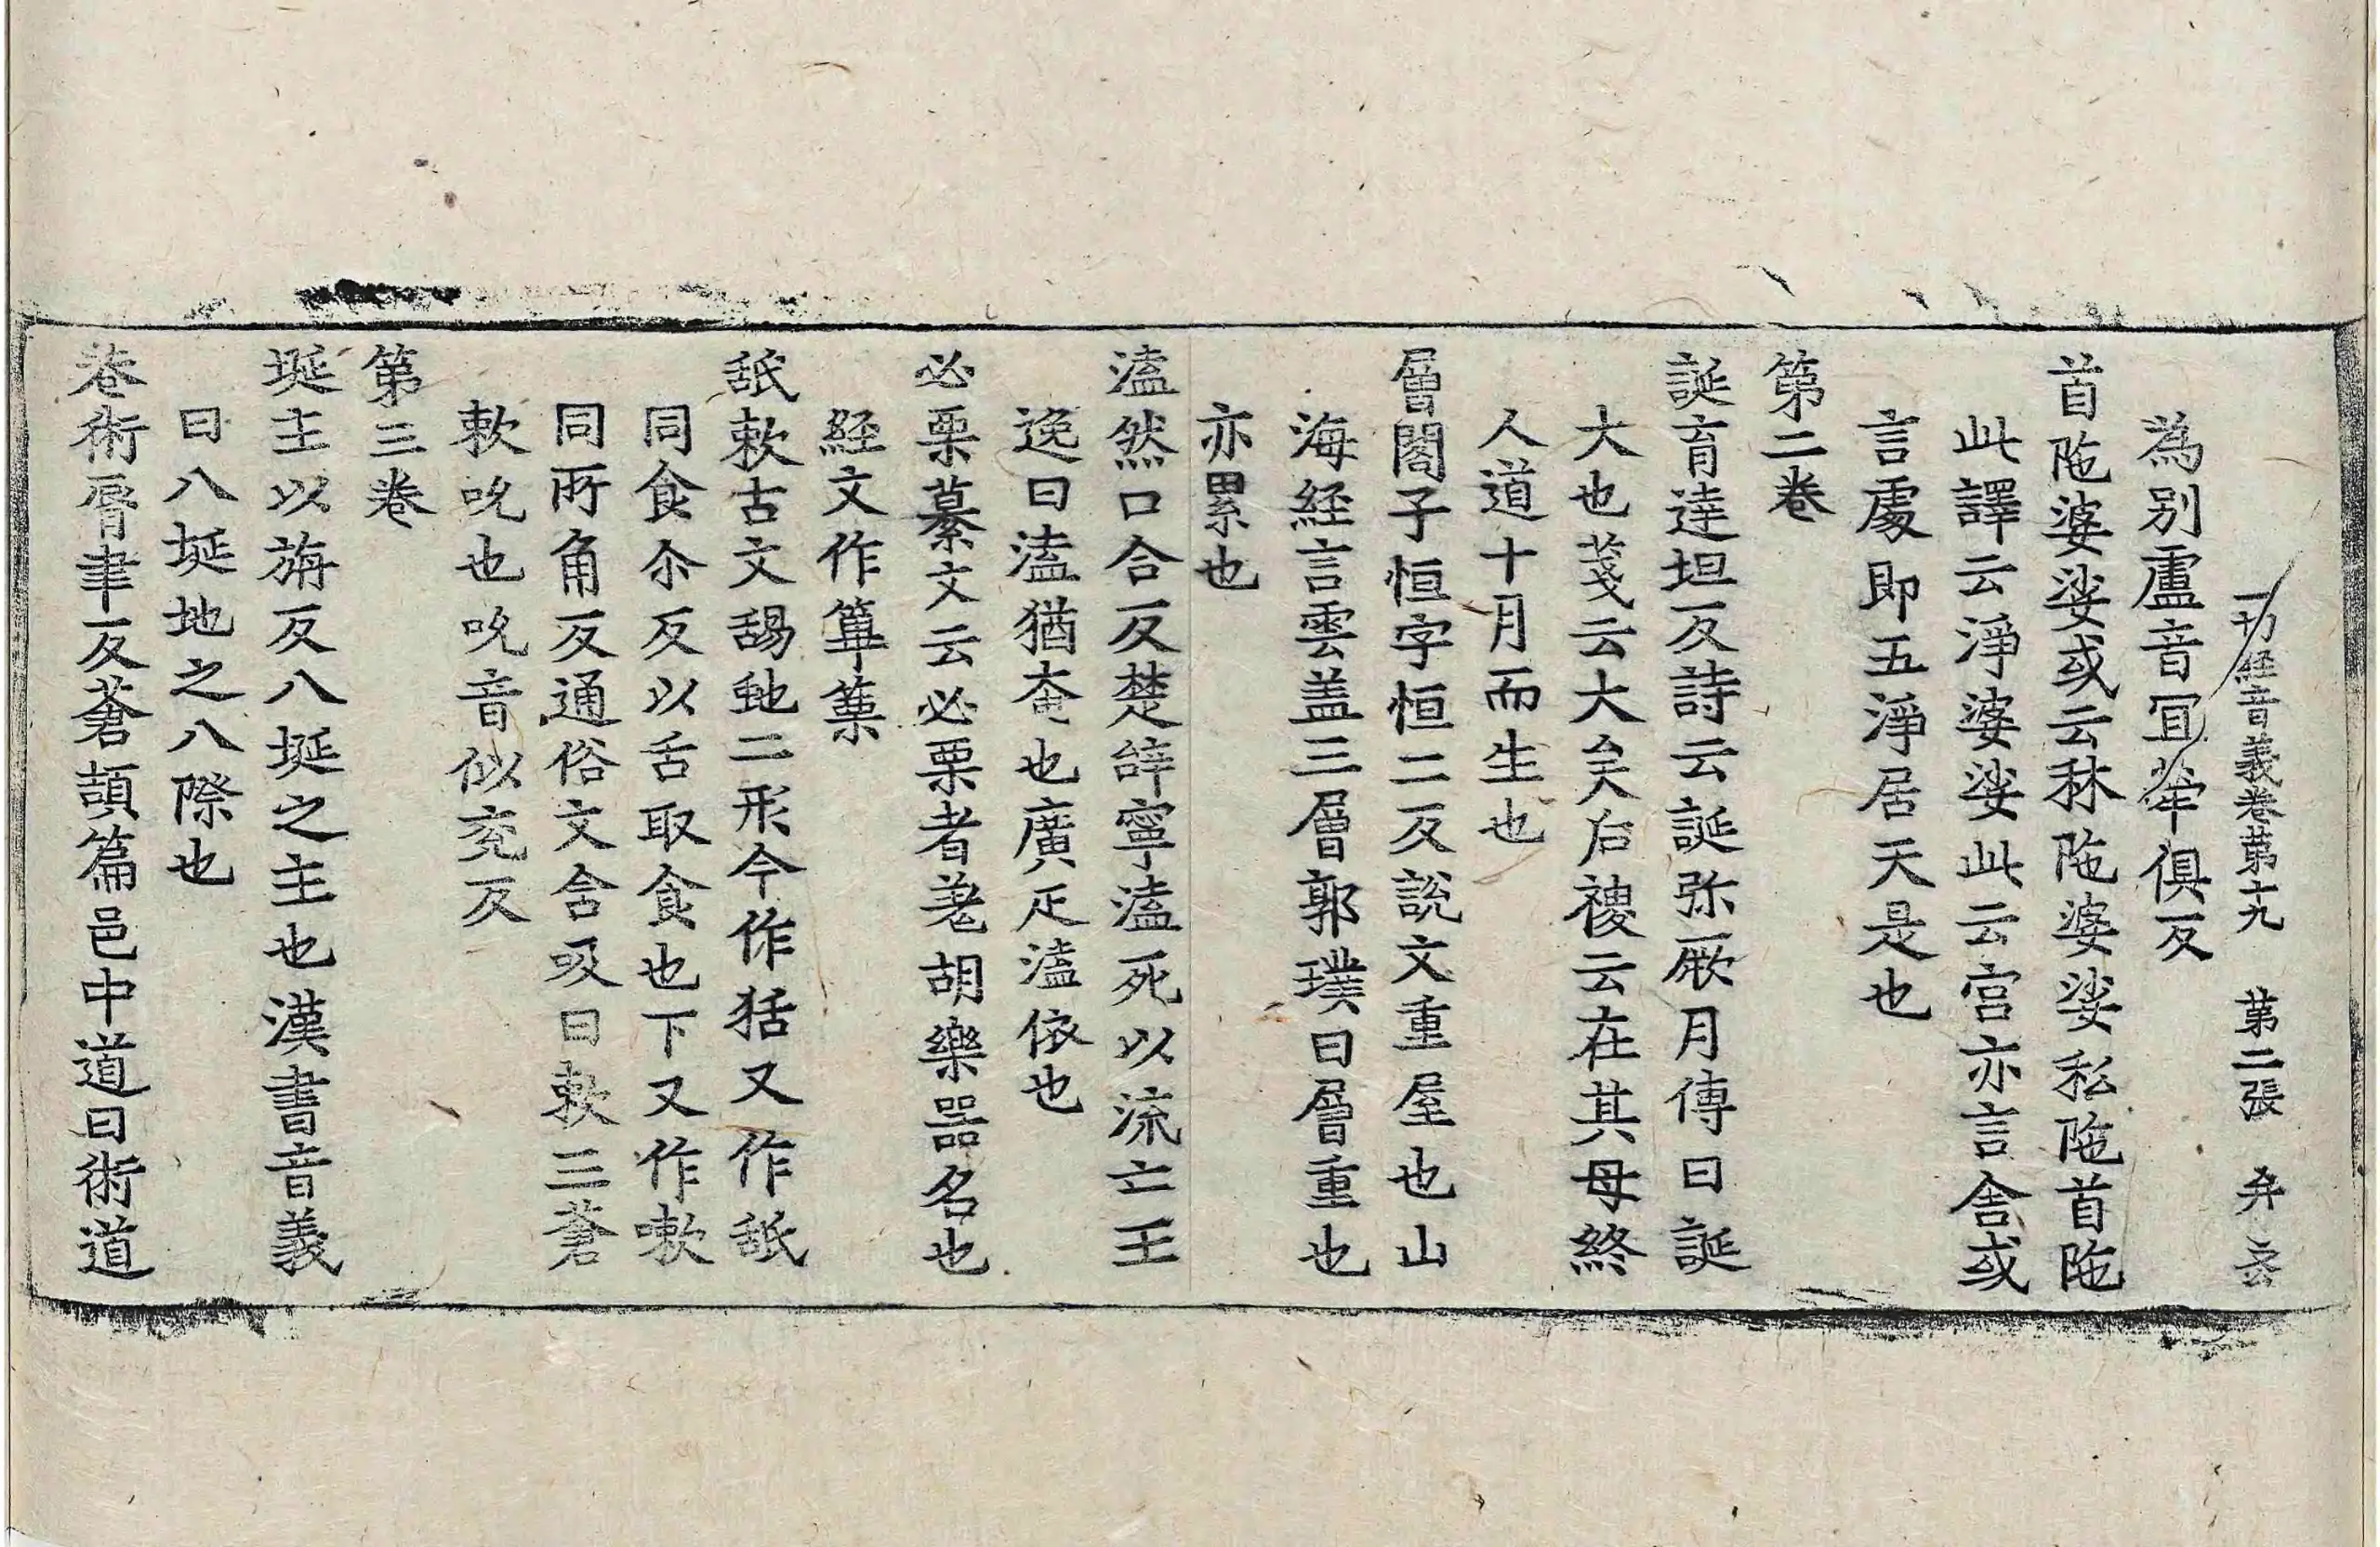 一切經音義卷第十九 第二張 弁
為別盧音冝 俱反
首陁婆娑或云秝陁婆娑私陁首陁
此譯云淨婆娑此云宫亦言舎或
言處即五淨居天是也
第二卷
誕育達坦反詩云誕弥厥月傳曰誕
大也䇳云大矣后稷云在其母終
人道十月而生也
層閣子恒字恒二反說文重屋也山
海經言雲盖三層郭璞曰層重也
亦累也
溘然口合反楚辝寧溘死以流亡王
逸曰溘猶奄也廣疋溘依也
必栗纂文云必栗者羌胡樂器名也
経文作篳篥
舐欶古文䑛䑜二形今作狧又作䑛
同食尒反以舌取食也下又作嗽
同所角反通俗文含吸曰欶三蒼
欶吮也吮音似兖反
第三卷
埏主以旃反八埏之主也漢書音義
曰八埏地之八際也
巷術胥聿反蒼頡篇邑中道曰術道